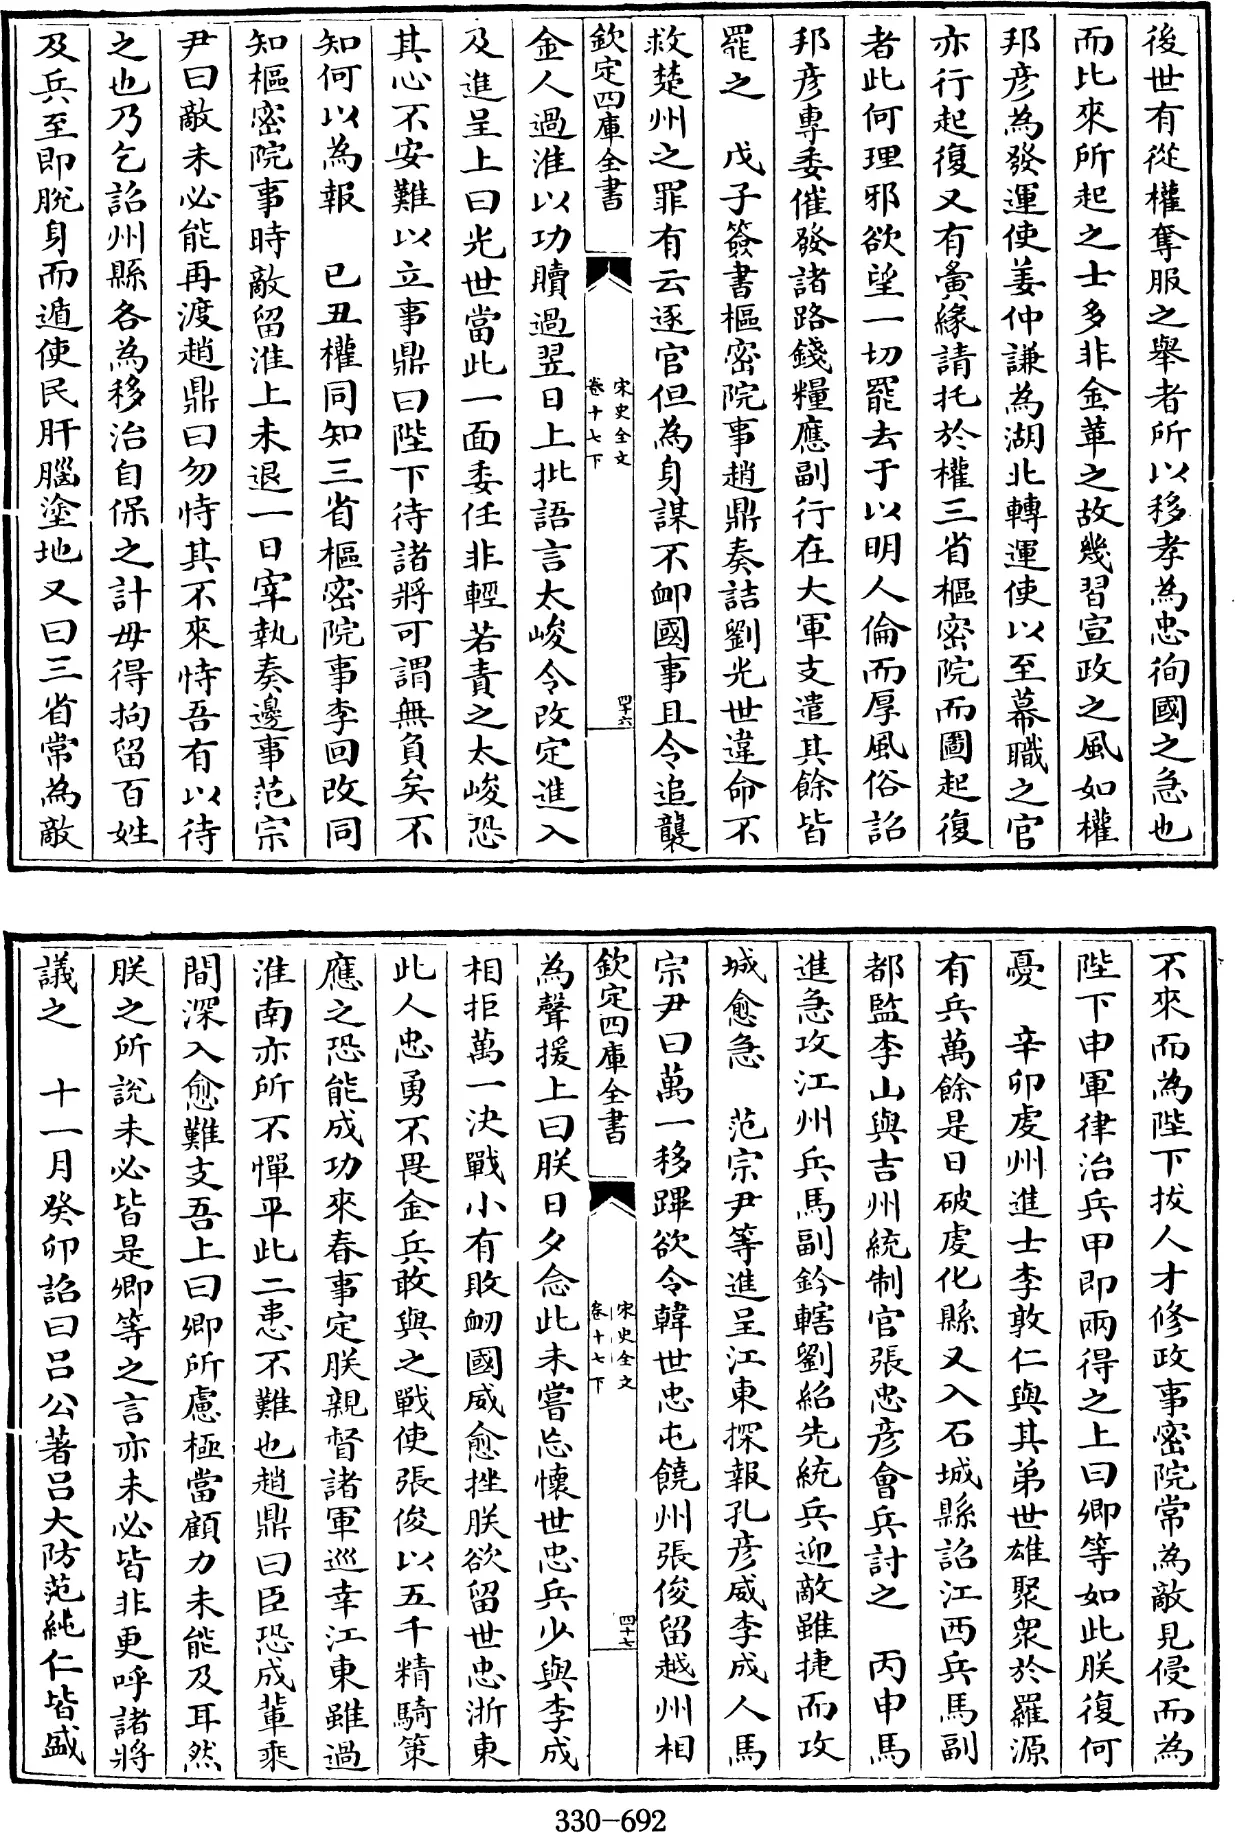 後世有從權奪服之舉者所以移孝為忠徇國之急也
而比來所起之士多非金革之故幾習宣政之風如權
邦彦為發運使姜仲謙為湖北轉運使以至幕職之官
亦行起復又有夤緣請托於權三省樞密院而圖起復
者此何理邪欲望一切罷去于以明人倫而厚風俗詔
邦彦專委催發諸路錢糧應副行在大軍支遣其餘皆
罷之　戊子簽書樞密院事趙鼎奏詰劉光世違命不
救楚州之罪有云逐官但為身謀不卹國事且令追襲
欽定四庫全書
宋史全文
卷十七下
四十六
金人過淮以功贖過翌日上批語言太峻令改定進入
及進呈上曰光世當此一面委任非輕若責之太峻恐
其心不安難以立事鼎曰陛下待諸將可謂無負矣不
知何以為報　已丑權同知三省樞密院事李回改同
知樞密院事時敵留淮上未退一日宰執奏邊事范宗
尹曰敵未必能再渡趙鼎曰勿恃其不來恃吾有以待
之也乃乞詔州縣各為移治自保之計毋得拘留百姓
及兵至即脱身而遁使民肝腦塗地又曰三省常為敵
不來而為陛下拔人才修政事密院常為敵見侵而為
陛下申軍律治兵甲即兩得之上曰卿等如此朕復何
憂　辛卯虔州進士李敦仁與其弟世雄聚衆於羅源
有兵萬餘是日破虔化縣又入石城縣詔江西兵馬副
都監李山與吉州統制官張忠彦會兵討之　丙申馬
進急攻江州兵馬副鈐轄劉紹先統兵迎敵雖捷而攻
城愈急　范宗尹等進呈江東探報孔彦威李成人馬
宗尹曰萬一移蹕欲令韓世忠屯饒州張俊留越州相
欽定四庫全書
宋史全文
卷十七下
四十七
為聲援上曰朕日夕念此未嘗忘懷世忠兵少與李成
相拒萬一決戰小有敗衂國威愈挫朕欲留世忠浙東
此人忠勇不畏金兵敢與之戰使張俊以五千精騎策
應之恐能成功來春事定朕親督諸軍巡幸江東雖過
淮南亦所不憚平此二患不難也趙鼎曰臣恐成軰乘
間深入愈難支吾上曰卿所慮極當顧力未能及耳然
朕之所説未必皆是卿等之言亦未必皆非更呼諸將
議之　十一月癸卯詔曰吕公著吕大防范純仁皆盛
330-692